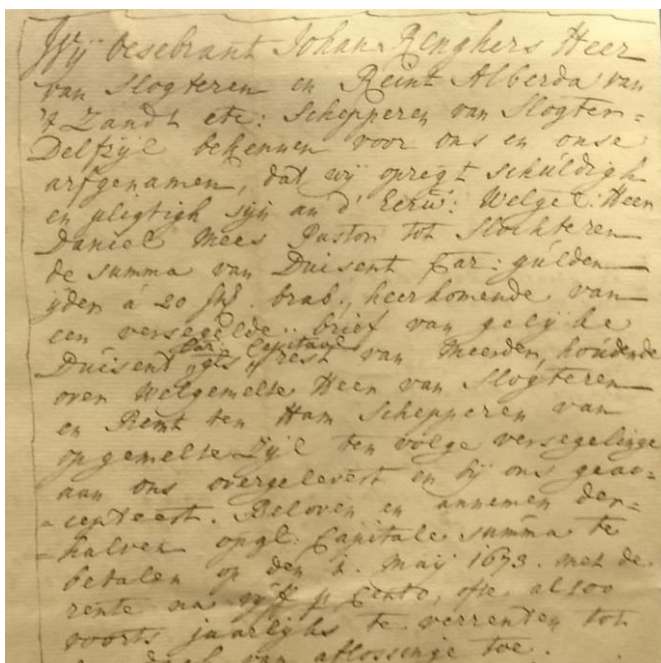 Wij Osebrant Johan Renghers Heer
van Slogteren en Reint Alberda van
't Zandt etc: Schepperen van Slogter=
Delfzyl bekennen voor ons en onse
arfgenamen, dat wij opregt schúldigh
en pligtigh sijn an d' Eerw: Welgel: Heer
Daniel Mees Pastor tot Slochteren
de summa van Duisent Car: gúlden
yder á 20 st. brab., heerkomende van
een versegelde brief van gelijke
Car: Capitael
Dúisent gls rest van meerder, hoúdende
over welgemelte Heer van Slogteren
en Remt ten Ham Schepperen van
opgemelte Zijl ten volge versegelinge
aan ons overgelevert en bij ons geac=
=cepteert. Beloven en annemen der=
=halven opgl: Capitale summa te
betalen op den 1. Maij 1673. met de
rente na vijf p Cento, ofte alsoo
voorts jaarlijks te verrenten tot
van aflossinge toe.